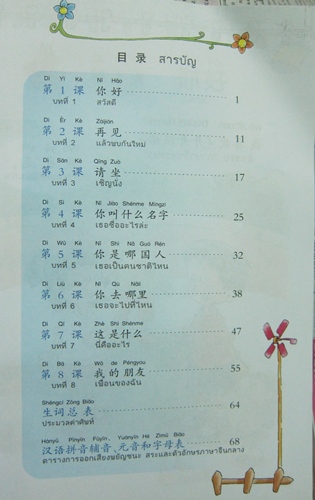 目 录 สารบัญ
Dì Yī Kè Nǐ Hǎo
第 1 课 你 好 1
บทที่ 1 สวัสดี
Dì Èr Kè Zàijiàn
第 2 课 再 见 11
บทที่ 2 แล้วพบกันใหม่
Dì Sān Kè Qǐng Zuò
第 3 课 请 坐 17
บทที่ 3 เชิญนั่ง
Dì Sì Kè Nǐ Jiào Shénme Míngzi
第 4 课 你 叫 什 么 名 字 25
บทที่ 4 เธอชื่ออะไรล่ะ
Dì Wǔ Kè Nǐ Shì Nǎ Guó Rén
第 5 课 你 是 哪 国 人 32
บทที่ 5 เธอเป็นคนชาติไหน
Dì Liù Kè Nǐ Qù Nǎli
第 6 课 你 去 哪 里 38
บทที่ 6 เธอจะไปที่ไหน
Dì Qī Kè Zhè Shì Shénme
第 7 课 这 是 什 么 47
บทที่ 7 นี่คืออะไร
Dì Bā Kè Wǒ de Péngyou
第 8 课 我 的 朋 友 55
บทที่ 8 เพื่อนของฉัน
Shēngcí Zǒng Biǎo
生 词 总 表 64
ประมวลคำศัพท์
Hànyǔ Pīnyīn Fǔyīn, Yuányīn Hé Zìmǔ Biǎo
汉语拼音辅音、元音和字母表 68
ตารางการออกเสียงพยัญชนะ สระและตัวอักษรภาษาจีนกลาง